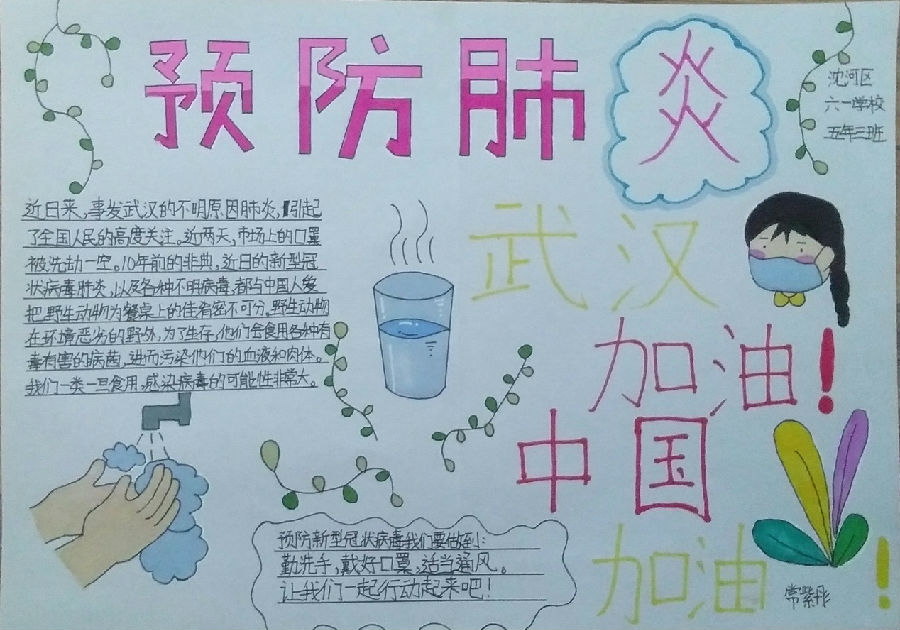 预防肺炎
沈河区
六一学校
五年三班
近日来,事发武汉的不明原因肺炎,引起
了全国人民的高度关注。近两天,市场上的口罩
被洗动一空。10年前的非典,近日的新型冠
状病毒肺炎,以及各种不明病毒,都与中国人爱
把野生动物为餐桌上的佳肴密不可分。野生动物
在环境恶劣的野外,为了生存,他们会食用各种有
毒有害的病菌,进而污染他们的血液和肉体。
我们一类一旦食用,感染病毒的可能性非常大。
武汉
加油!
中国
加油!
预防新型冠状病毒我们要做到:
勤洗手,戴好口罩,适当通风。
让我们一起行动起来吧!
常紫彤